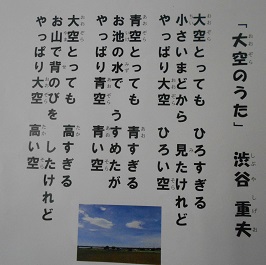 「大空のうた」 渋谷 重夫
大空とっても ひろすぎる
小さいまどから 見たけれど
やっぱり大空 ひろい空
青空とっても 青すぎる
お池の水で うすめたが
やっぱり青空 青い空
大空とっても 高すぎる
お山で背のびを したけれど
やっぱり大空 高い空